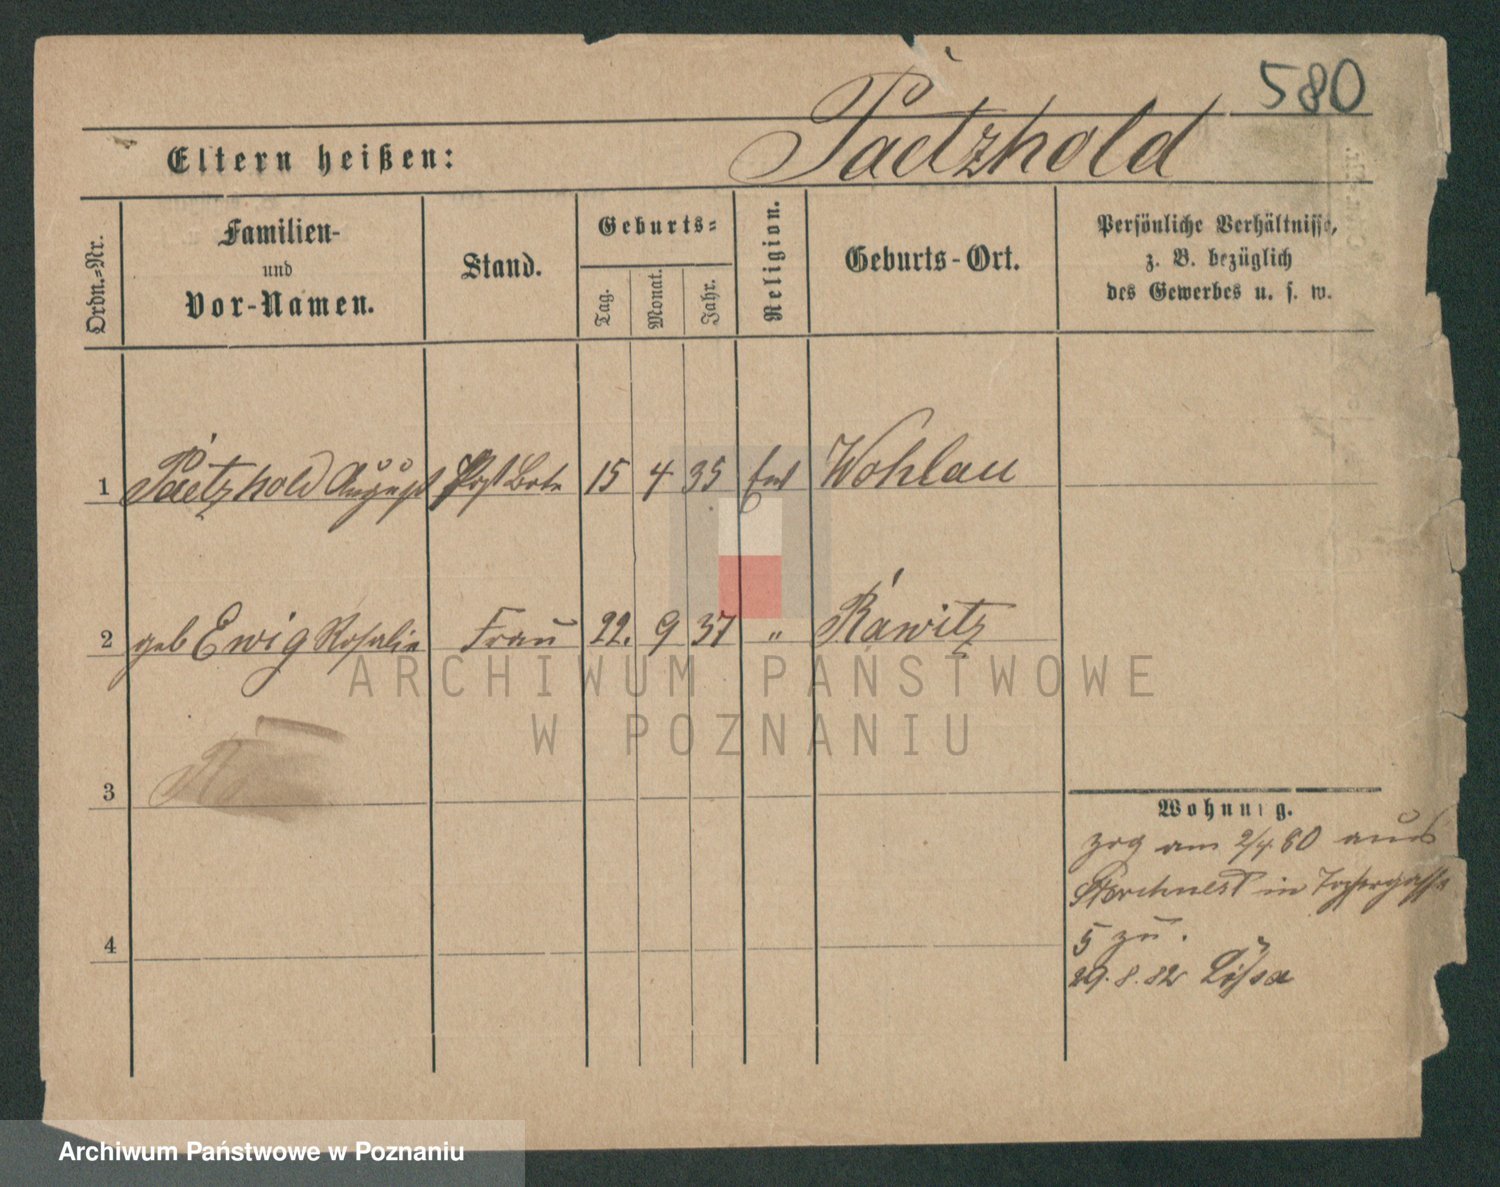 580
Paetzhold
Eltern heißen:
Ordn.=Nr.
Familien-
und
Vor-Namen.
Stand.
Geburts=
Tag.
Monat.
Jahr.
Religion.
Geburts-Ort.
Persönliche Verhältnisse,
z. B. bezüglich
des Gewerbes u. s. w.
1 Paetzhold August Post Bote 15 4 35 Ev Wohlau
2 geb Ewig Rosalie Frau 22. 9 37 " Rawitz
ARCHIWUM PAŃSTWOWE
W POZNANIU
3
Wohnung.
zog am 2/4 80 aus
Storchnest in Töpfergasse
4
5 zu.
29.8.82 Lissa
Archiwum Państwowe w Poznaniu